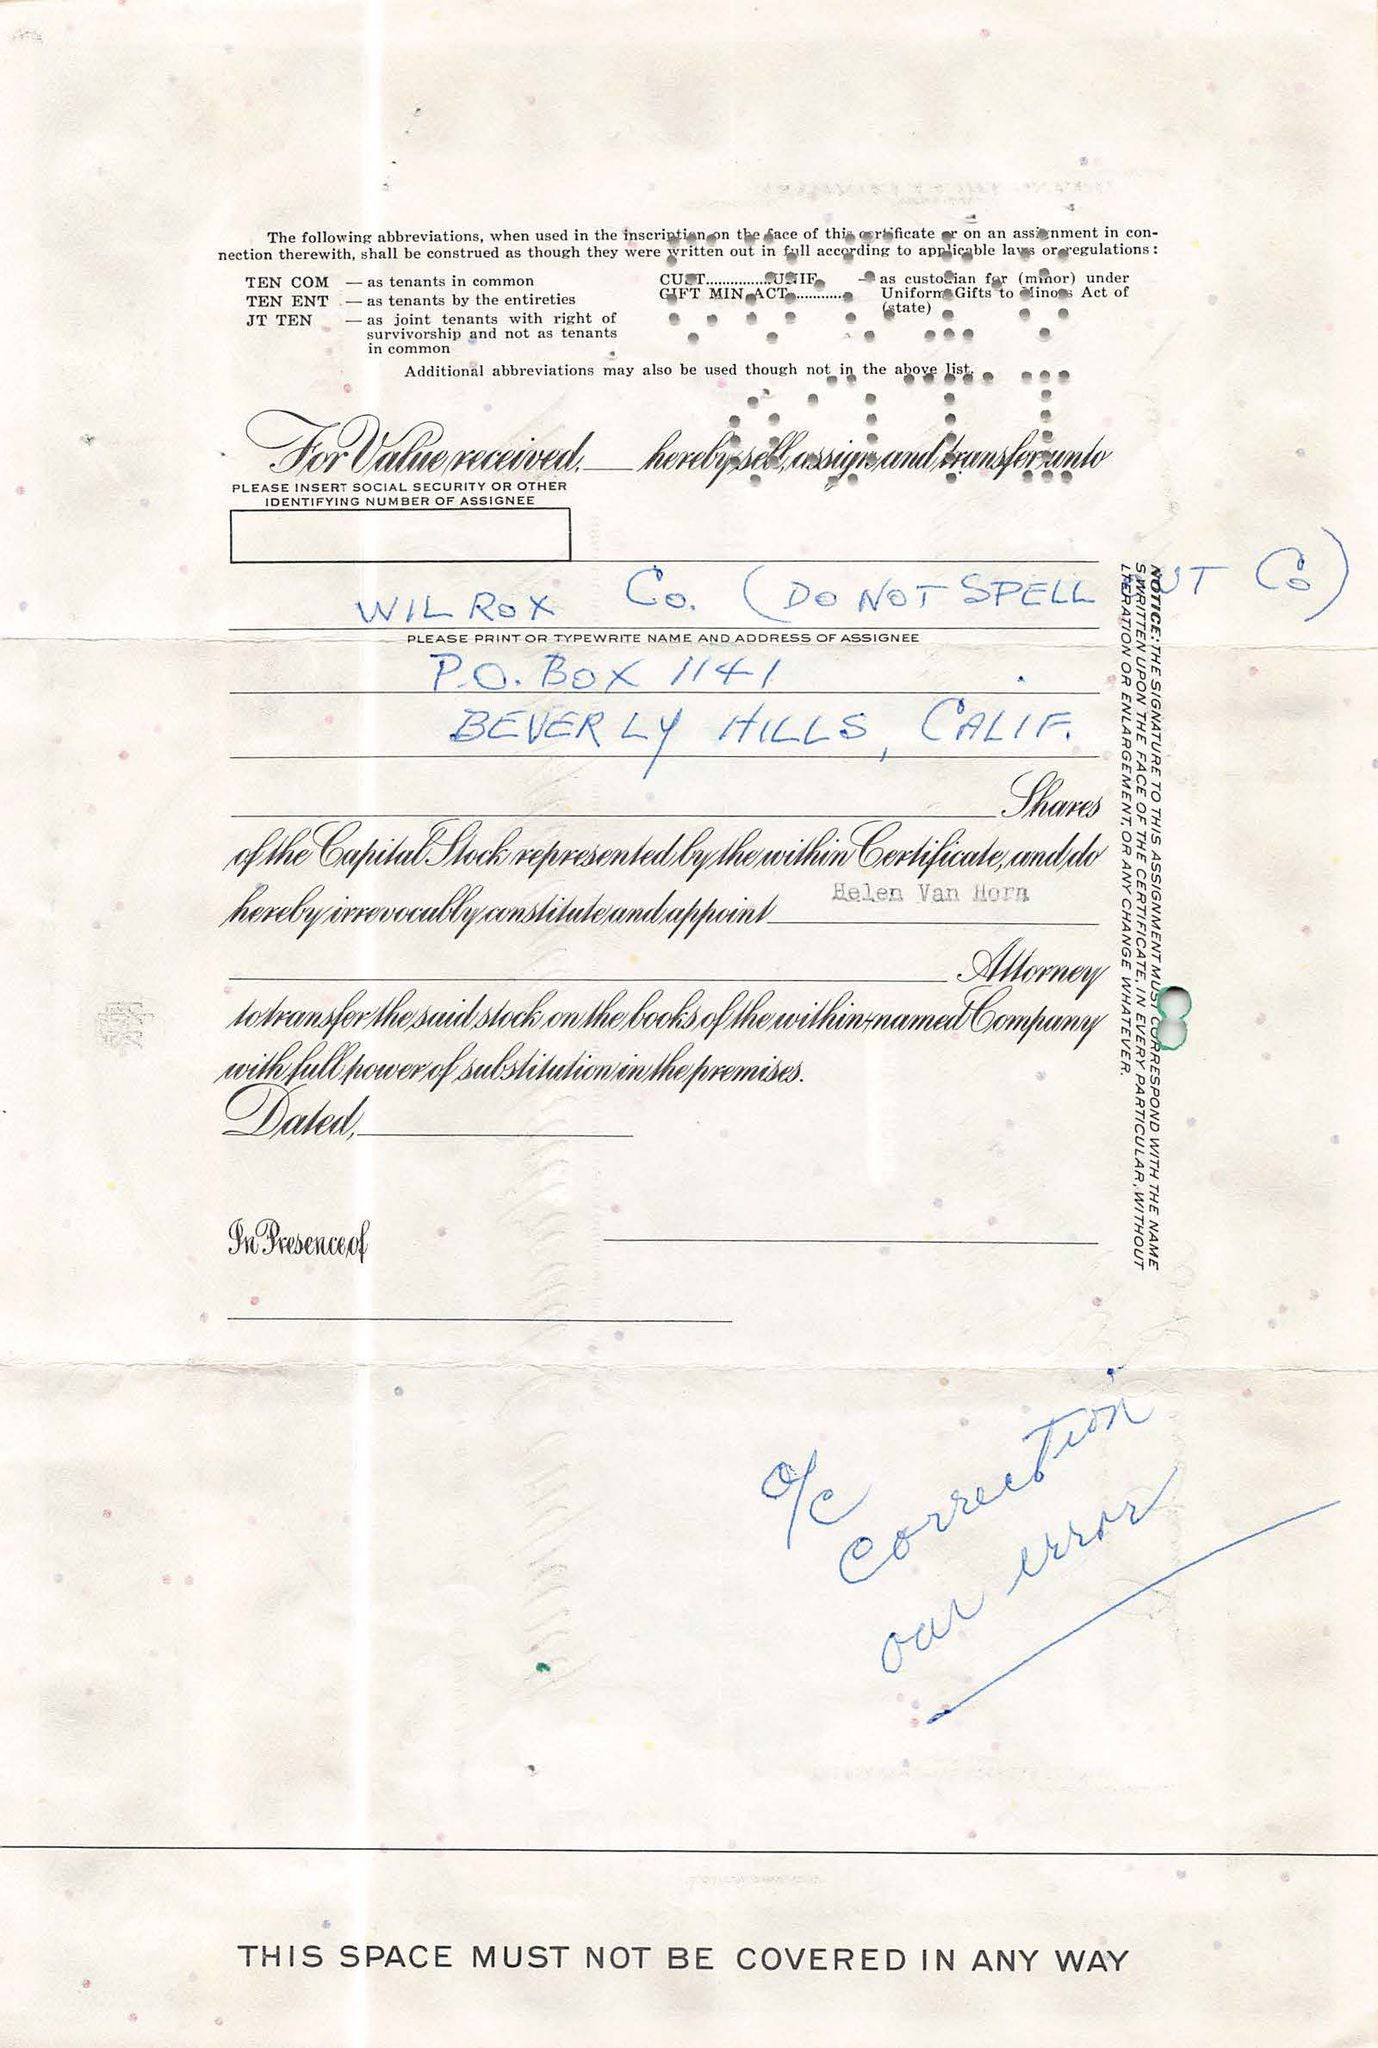 The following abbreviations, when used in the inscription on the face of this certificate or on an assignment in con-
nection therewith, shall be construed as though they were written out in full according to applicable laws or regulations:
TEN COM — as tenants in common
TEN ENT — as tenants by the entireties
JT TEN — as joint tenants with right of
survivorship and not as tenants
in common
CUST................UNIF. — as custodian for (minor) under
GIFT MIN ACT............ Uniform Gifts to Minors Act of
(state)
Additional abbreviations may also be used though not in the above list.
For Value received, ____ hereby sell, assign and transfer unto
PLEASE INSERT SOCIAL SECURITY OR OTHER
IDENTIFYING NUMBER OF ASSIGNEE
WILROX Co. (DO NOT SPELL OUT Co)
PLEASE PRINT OR TYPEWRITE NAME AND ADDRESS OF ASSIGNEE
P.O. BOX 1141
BEVERLY HILLS, CALIF.
Shares
of the Capital Stock represented by the within Certificate, and do
hereby irrevocably constitute and appoint Helen Van Horn
Attorney
to transfer the said stock on the books of the within-named Company
with full power of substitution in the premises.
Dated,
In Presence of
NOTICE: THE SIGNATURE TO THIS ASSIGNMENT MUST CORRESPOND WITH THE NAME
S WRITTEN UPON THE FACE OF THE CERTIFICATE, IN EVERY PARTICULAR, WITHOUT
LTERATION OR ENLARGEMENT, OR ANY CHANGE WHATEVER.
o/c
correction
our error
THIS SPACE MUST NOT BE COVERED IN ANY WAY